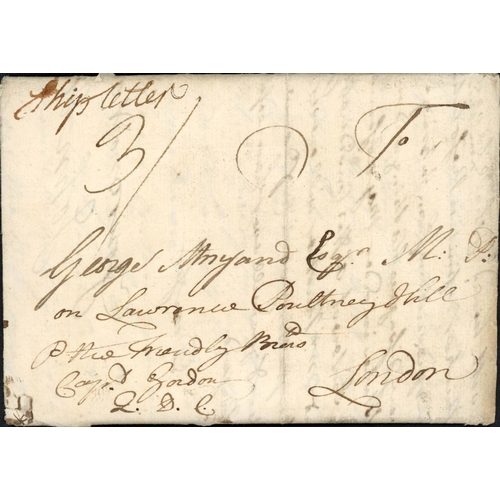 Ship letter
3/
To
George Amyand Esqr. M: P:
on Lawrence Poultney Hill
P the Friendly Bro
Capt. Gordon
Q. D. C.
London